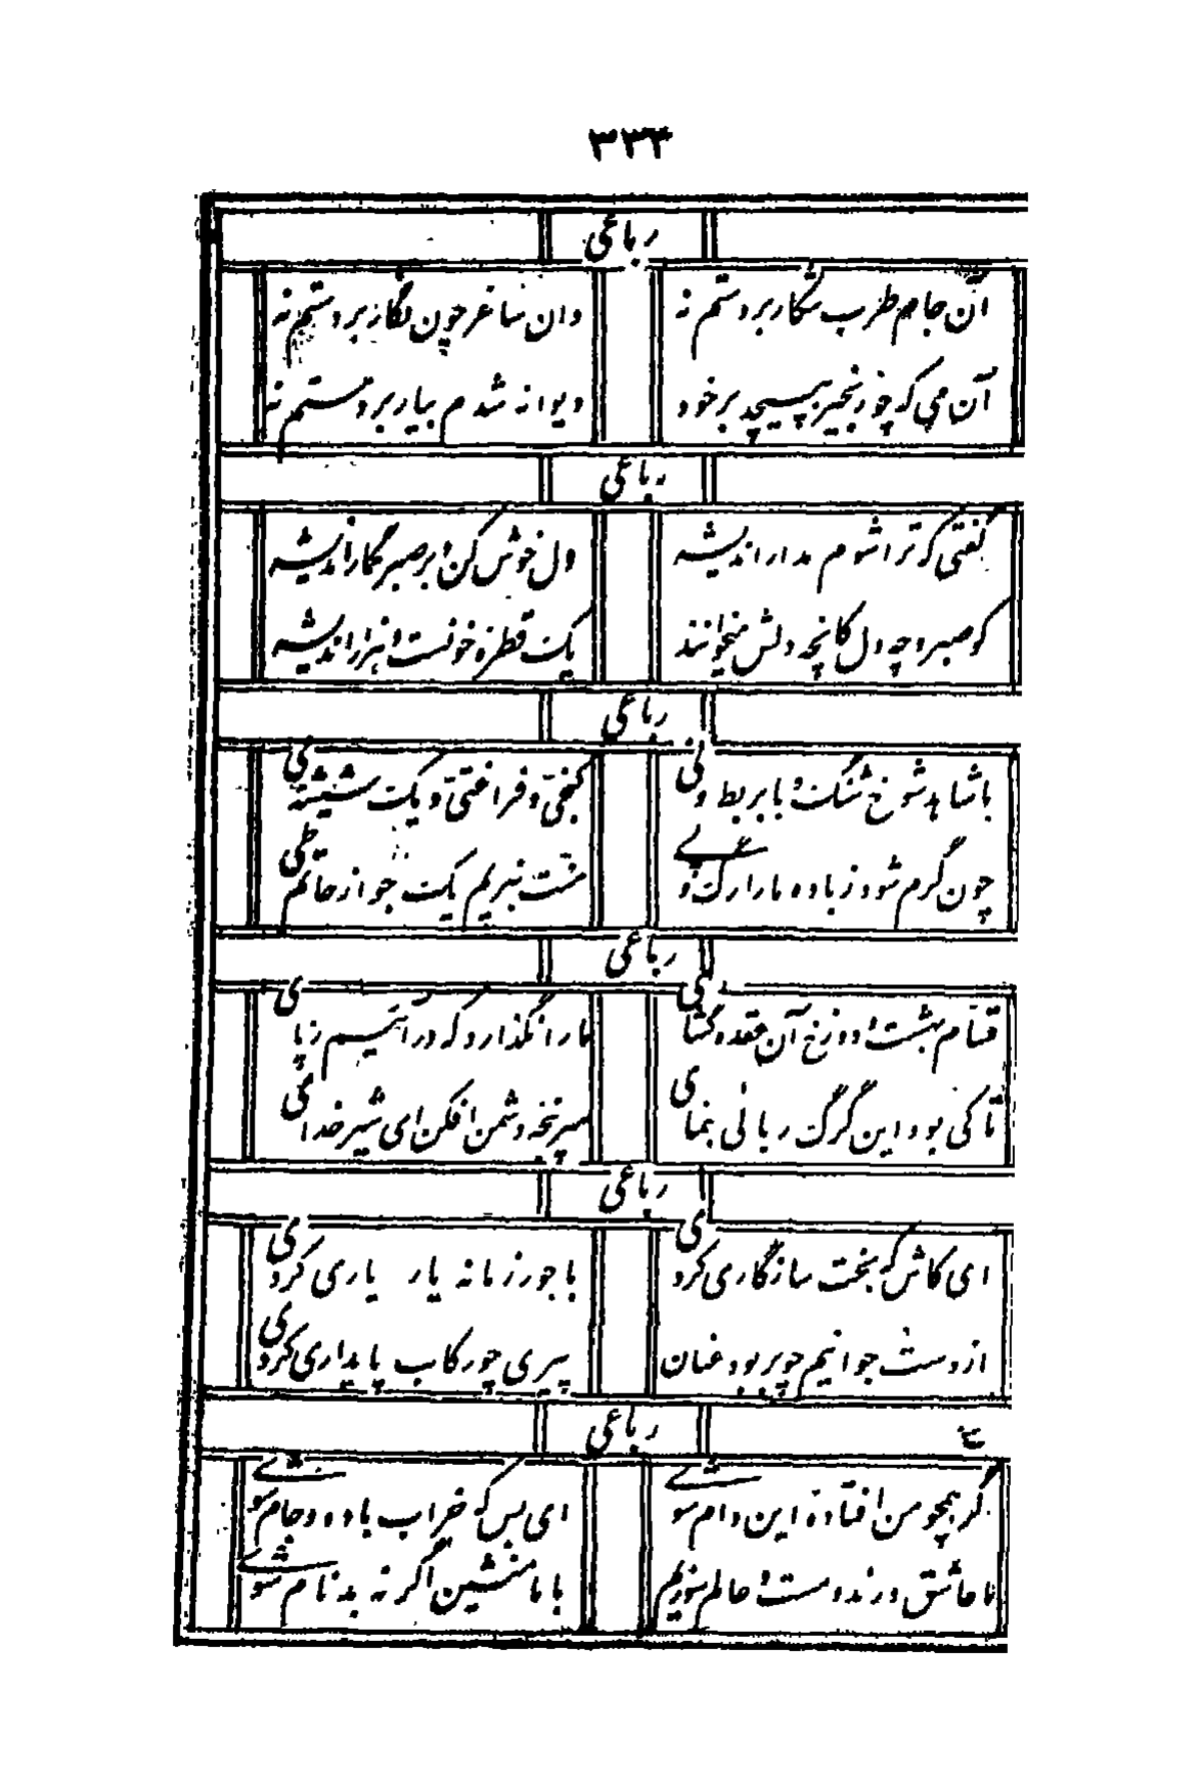 ۳۳۴
رباعی
آن جام طرب شکار بر دستم نه
وان ساغر چون نگار بر دستم نه
آن می که چو زنجیر بپیچد بر خود
دیوانه شدم بیار بر دستم نه
رباعی
گفتی که ترا شوم مدار اندیشه
دل خوش کن و بر صبر گمار اندیشه
کو صبر و چه دل کانچه دلش میخوانند
یک قطره خونست و هزار اندیشه
رباعی
با شاهد شوخ شنگ و با بربط و نی
کنجی و فراغتی و یک شیشه می
چون گرم شود ز باده ما را رگ و پے
منت نبریم یک جو از حاتم طی
رباعی
قسام بهشت و دوزخ آن عقده گشای
ما را نگذارد که درآئیم ز پای
تا کی بود این گرگ ربائی بنمای
سرپنجه دشمن افکن ای شیر خدای
رباعی
ای کاش که بخت سازگاری کردی
با جور زمانه یار یاری کردی
از دست جوانیم چو بربود عنان
پیری چو رکاب پایداری کردی
رباعی
گر همچو من افتاده این دام شوے
ای بس که خراب باده و جام شوے
ما عاشق و رند و مست و عالم سوزیم
با ما منشین اگر نه بدنام شوے